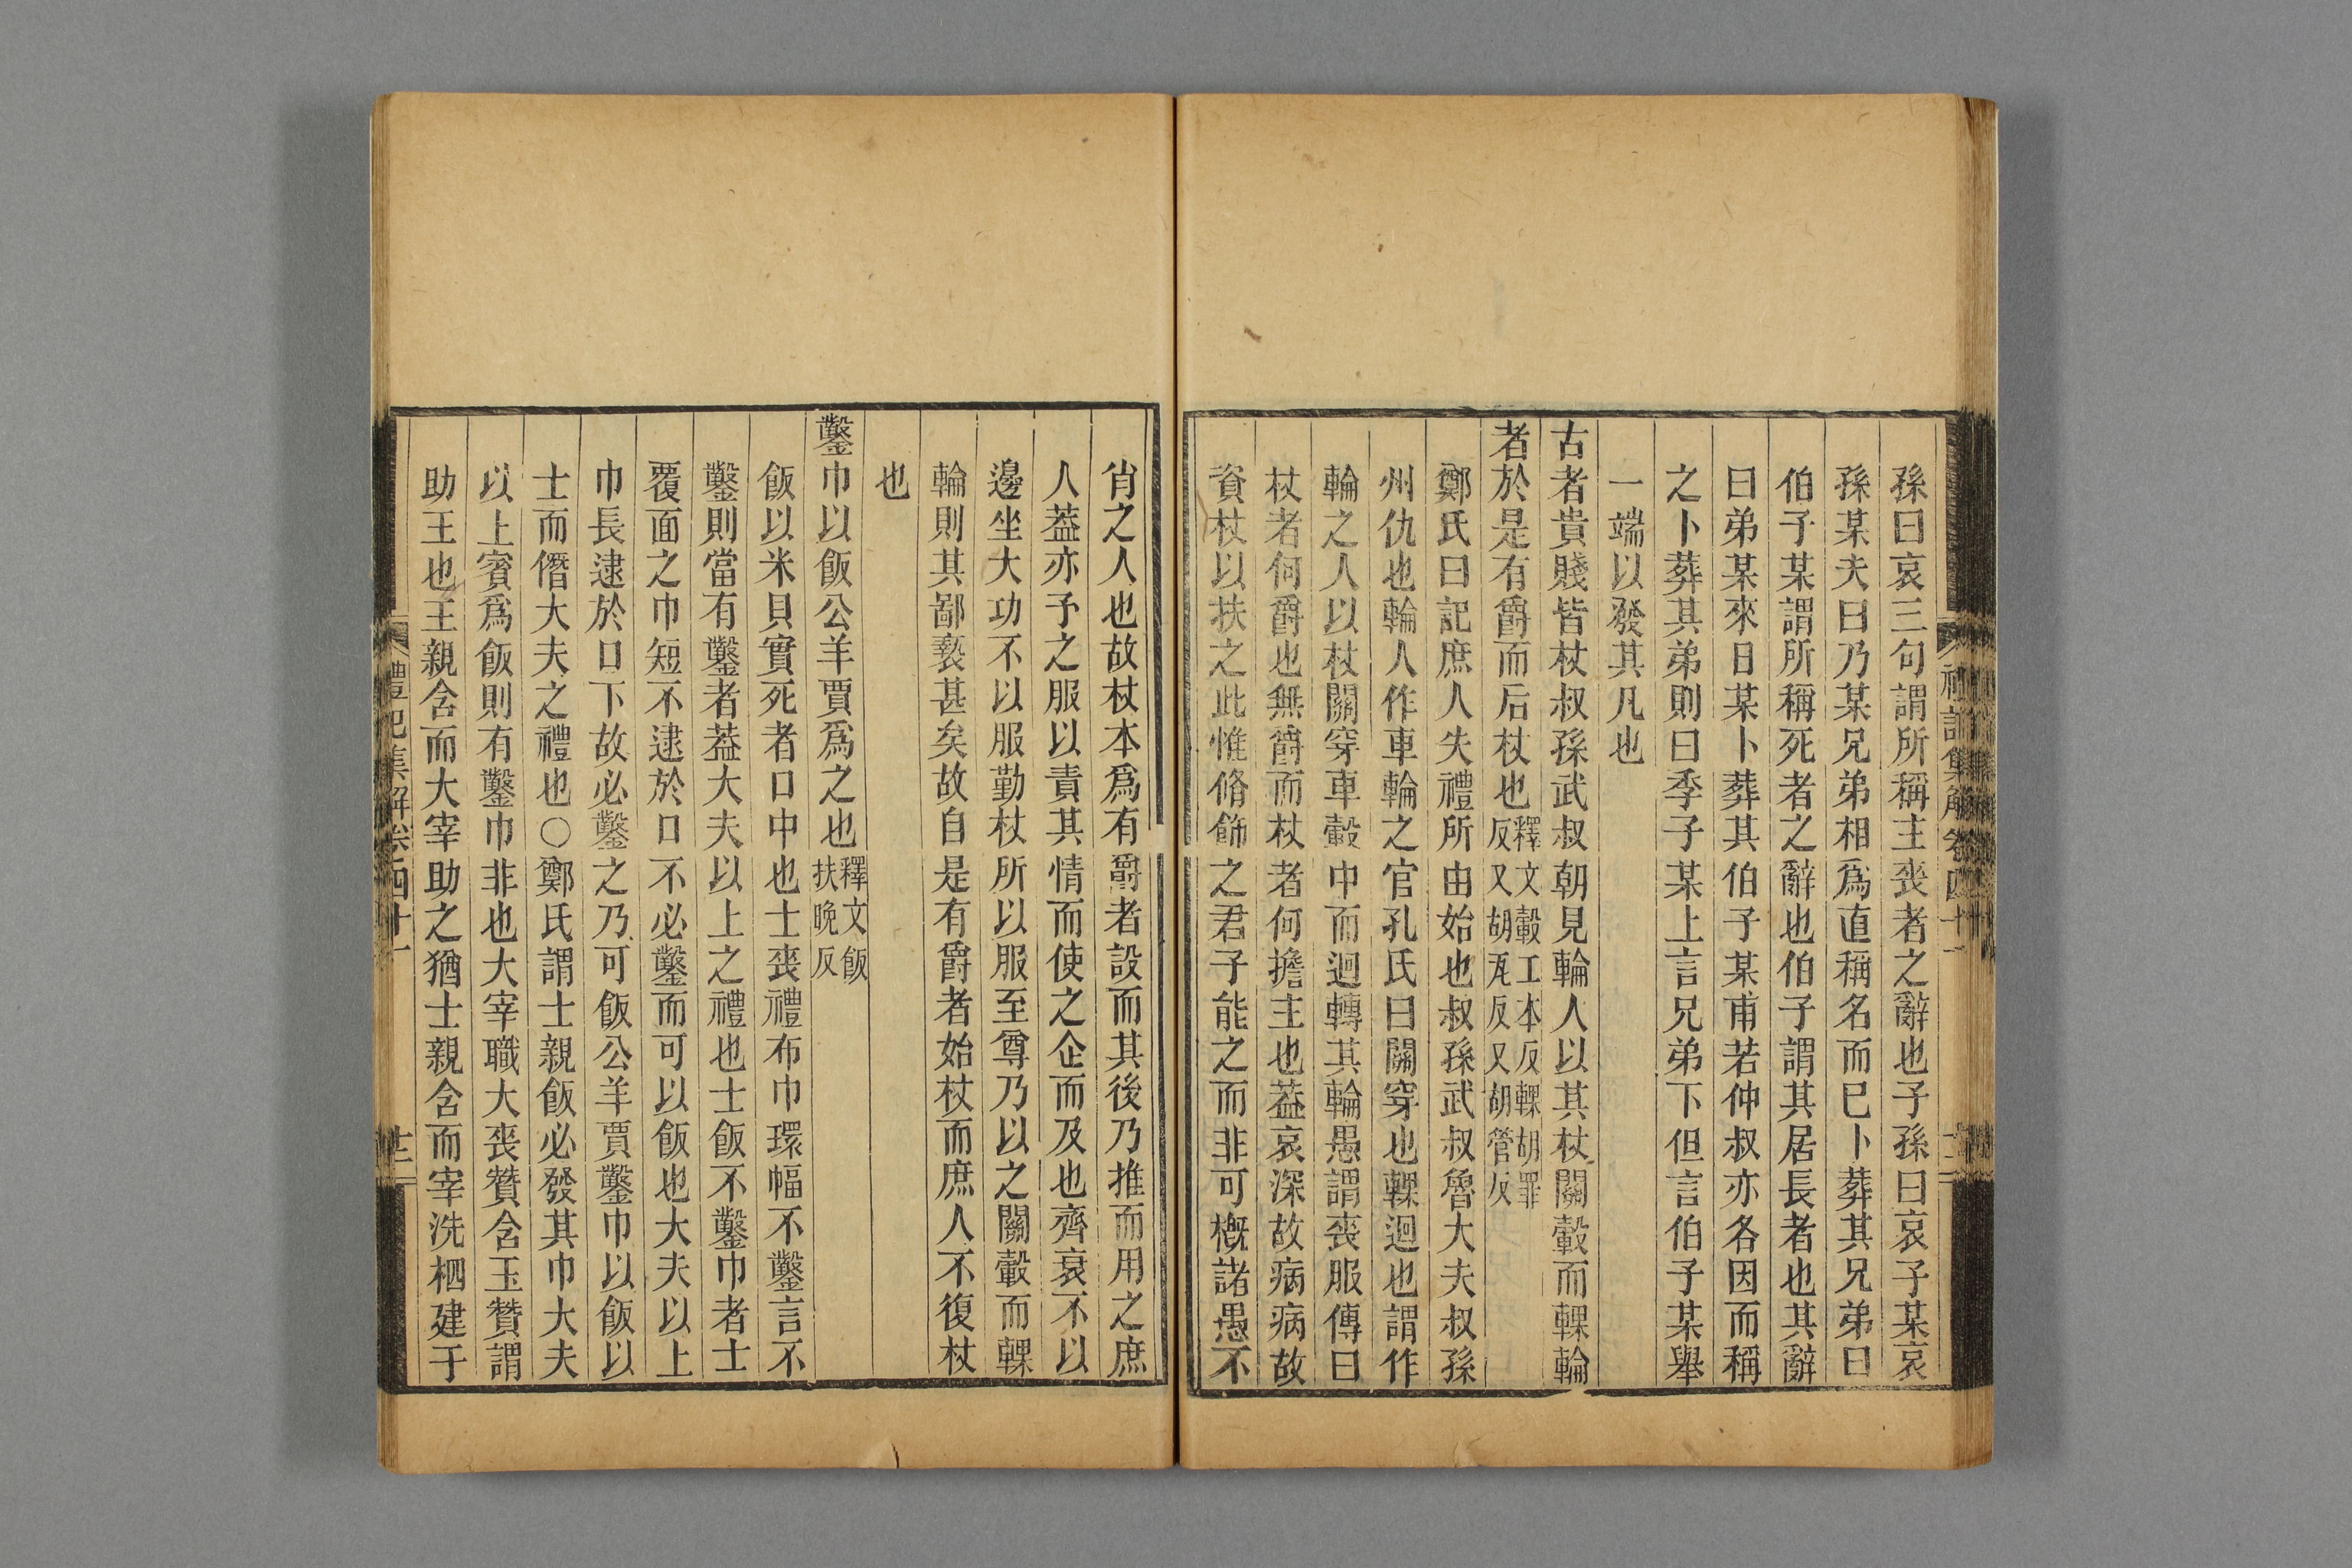 孫曰哀三句謂所稱主喪者之辭也子孫曰哀子某哀
孫某夫曰乃某兄弟相爲直稱名而已卜葬其兄弟曰
伯子某謂所稱死者之辭也伯子謂其居長者也其辭
曰弟某來日某卜葬其伯子某甫若仲叔亦各因而稱
之卜葬其弟則曰季子某上言兄弟下但言伯子某舉
一端以發其凡也
古者貴賤皆杖叔孫武叔朝見輪人以其杖關轂而輠輪
者於是有爵而后杖也釋文轂工本反輠胡罪反又胡瓦反又胡管反
鄭氏曰記庶人失禮所由始也叔孫武叔魯大夫叔孫
州仇也輪人作車輪之官孔氏曰關穿也輠迴也謂作
輪之人以杖關穿車轂中而迴轉其輪愚謂喪服傳曰
杖者何爵也無爵而杖者何擔主也葢哀深故病病故
資杖以扶之此惟脩飾之君子能之而非可槪諸愚不
肖之人也故杖本爲有爵者設而其後乃推而用之庶
人葢亦予之服以責其情而使之企而及也齊衰不以
邊坐大功不以服勤杖所以服至尊乃以之關轂而輠
輪則其鄙褻甚矣故自是有爵者始杖而庶人不復杖
也
鑿巾以飯公羊賈爲之也釋文飯扶晚反
飯以米貝實死者口中也士喪禮布巾環幅不鑿言不
鑿則當有鑿者葢大夫以上之禮也士飯不鑿巾者士
覆面之巾短不逮於口不必鑿而可以飯也大夫以上
巾長逮於口下故必鑿之乃可飯公羊賈鑿巾以飯以
士而僭大夫之禮也○鄭氏謂士親飯必發其巾大夫
以上賓爲飯則有鑿巾非也大宰職大喪贊含玉贊謂
助王也王親含而大宰助之猶士親含而宰洗柶建于
禮記集解卷四十一
十二